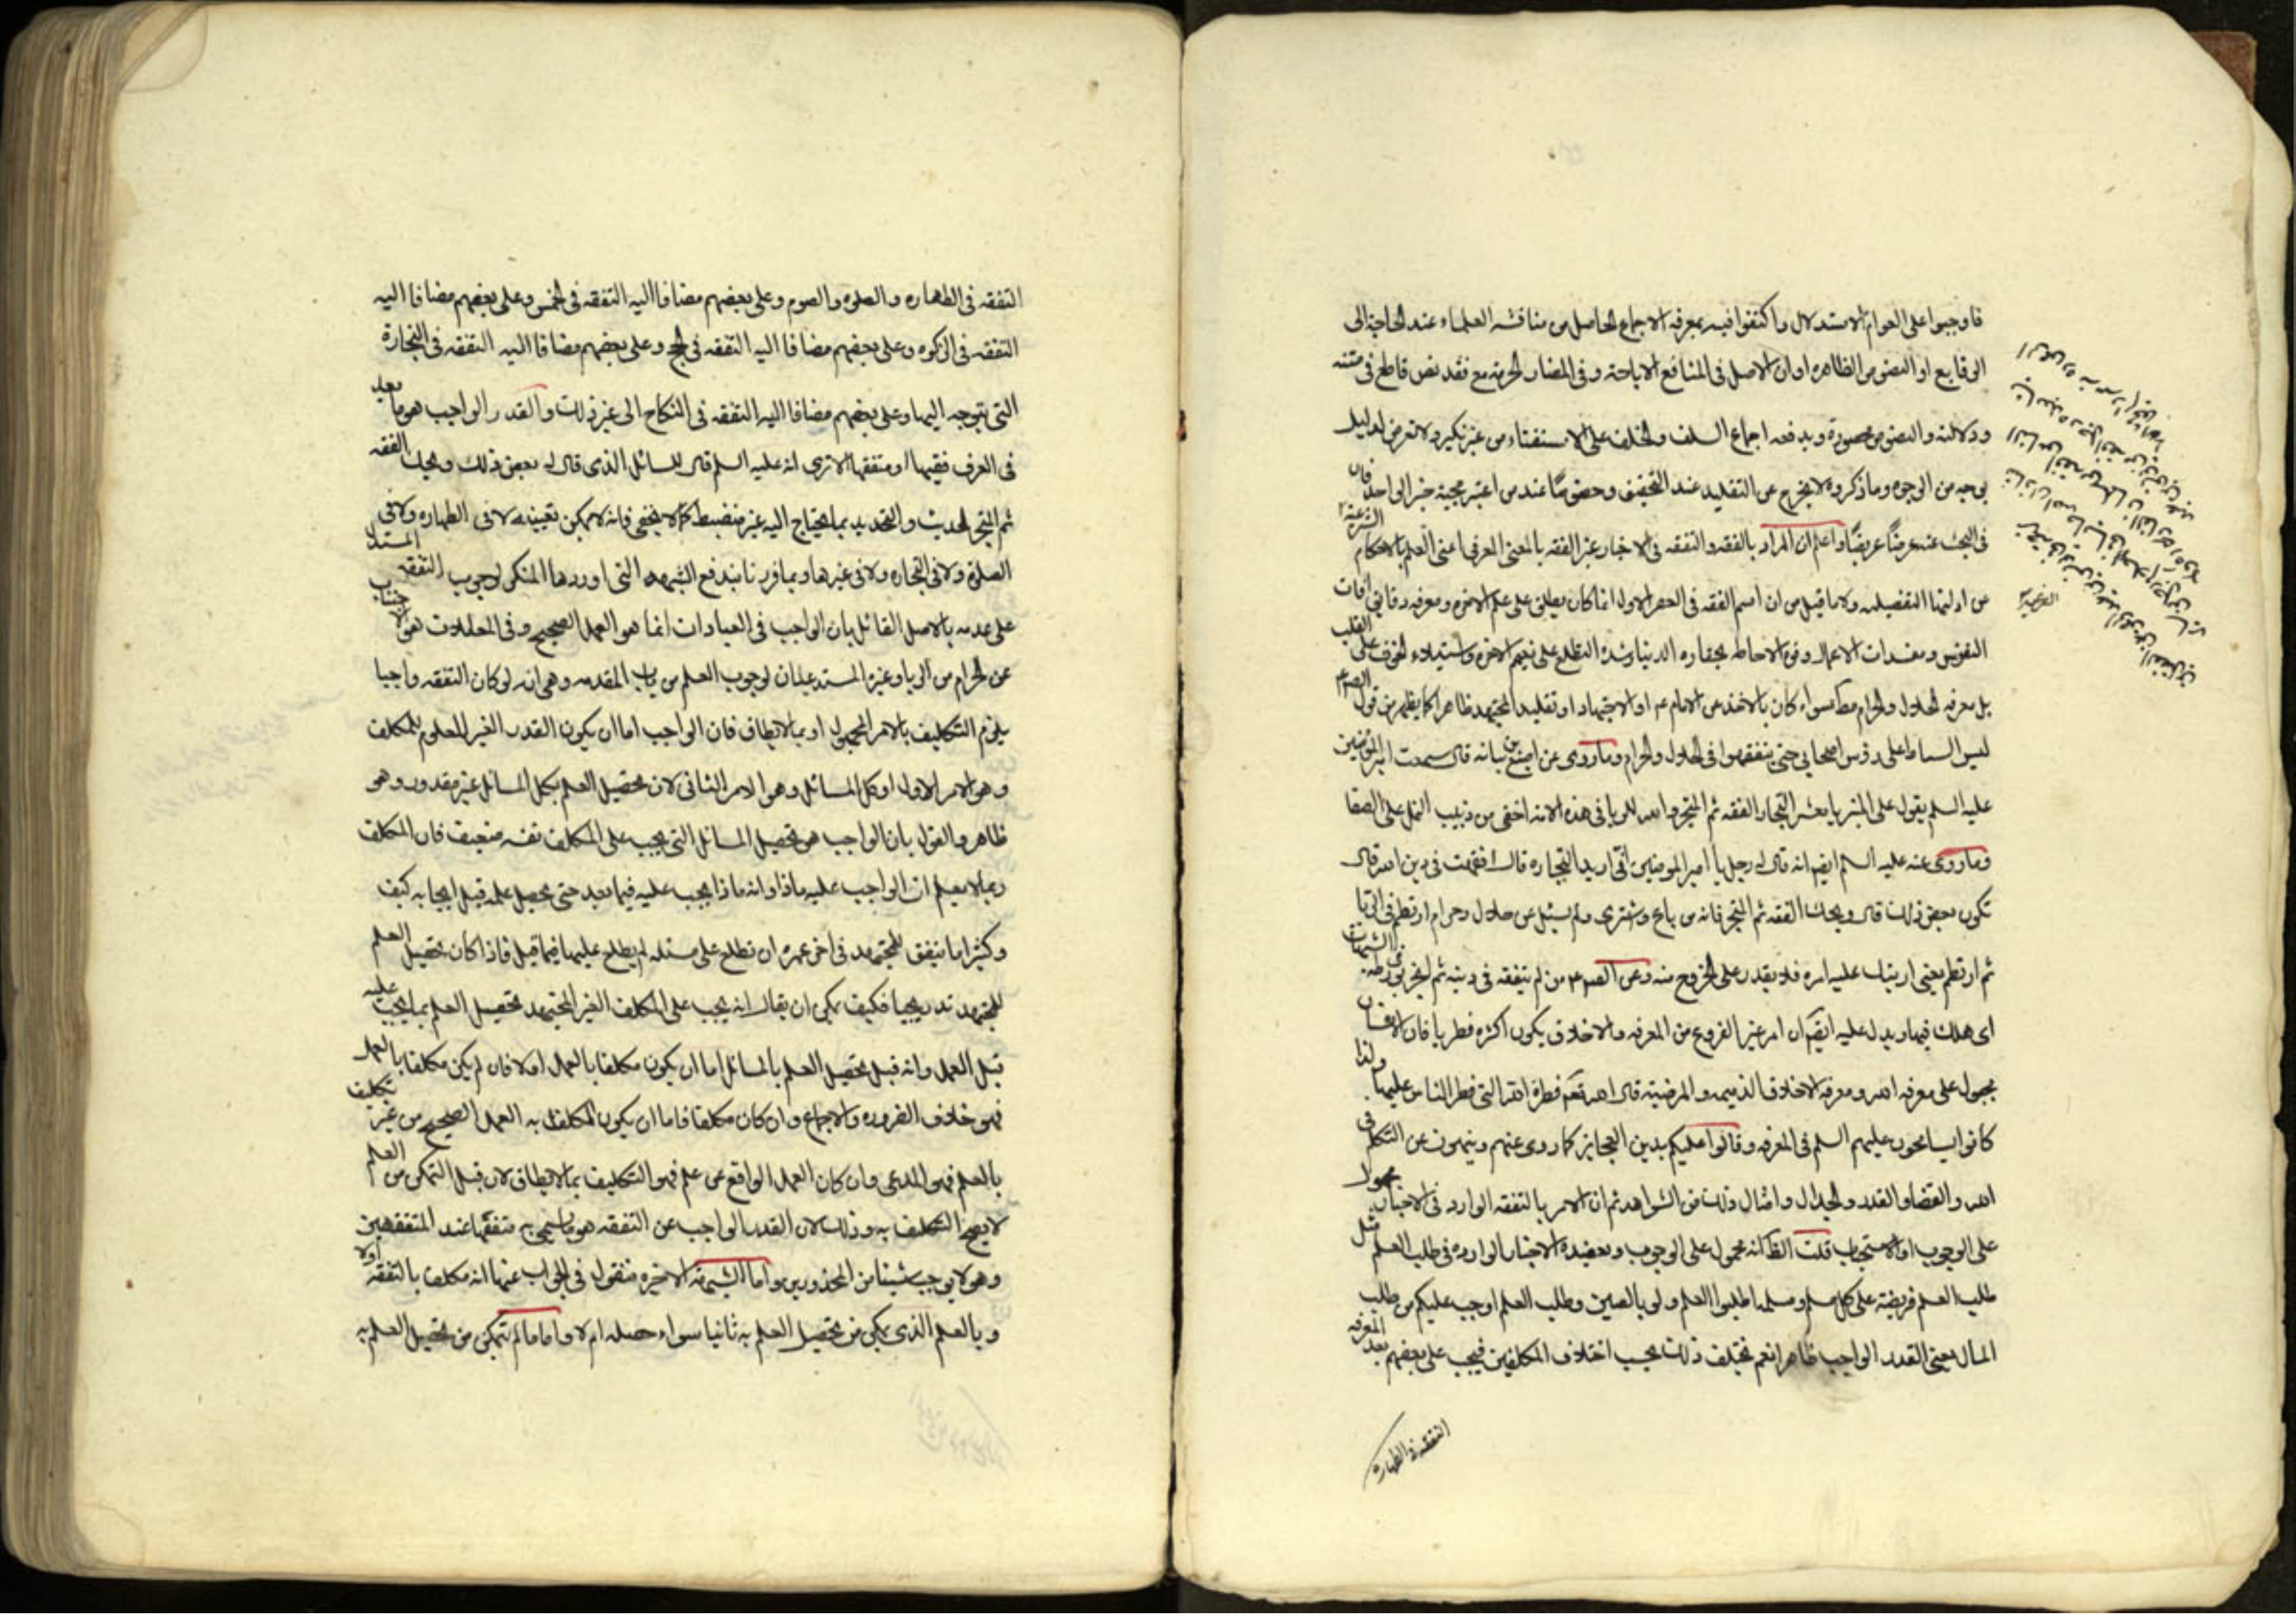 فاوجبوا على العوام الاستدلال واكتفوا فيه بمعرفه الاجماع الحاصل من مناقشه العلماء عند الحاجة الى
الوقايع او النصوص الظاهره او ان الاصل فى المنافع الاباحة وفى المضار الحرمة مع فقد نص قاطع فى متنه
ودلالته والنصوص محصورة ويدفعه اجماع السلف والخلف على الاستفتاء من غير نكير ولا تعرض لدليل
بوجه من الوجوه وما ذكروه لا يخرج عن التقليد عند التحقيق وخصوصًا عند من اعتبر حجية خبر الواحد فان
فى البحث عنه عرضًا عريضًا واعلم ان المراد بالفقه والتفقه فى الاخبار غير الفقه بالمعنى العرفى اعنى العلم بالاحكام الشرعية
عن ادلتها التفصيليه ولا ما قيل من ان اسم الفقه فى العصر الاول انما كان يطلق على علم الاخره ومعرفه دقايق افات
النفوس ومفسدات الاعمال وقوه الاحاطه بحقاره الدنيا وشدة التطلع على نعيم الاخره واستيلاء الخوف على القلب
بل معرفه الحلال والحرام مط سواء كان بالاخذ عن الامام ع او الاجتهاد او تقليد المجتهد ظاهرا كما يظهر من قول الصم ع
ليس السياط على رؤس اصحابى حتى يتفقهوا فى الحلال والحرام وما روى عن اصبغ بن نباته قال سمعت امير المؤمنين
عليه السلم يقول على المنبر يا معشر التجار الفقه ثم المتجر والله للربا فى هذه الامة اخفى من دبيب النمل على الصفا
وما روى عنه عليه السلم ايضم انه قال له رجل يا امير المومنين انى اريد التجاره قال افقهت فى دين الله قال
تكون بعض ذلك قال ويحك الفقه ثم المتجر فانه من باع واشترى ولم يسئل عن حلال وحرام ارتطم فى الربا
ثم ارتطم يعنى ارتبك عليه امره فلا يقدر على الخروج منه وعن الصم ع من لم يتفقه فى دينه ثم اتجر تورط فى الشبهات
اى هلك فيها ويدل عليه ايضم ان امر غير الفروع من المعرفه والاخلاق يكون اكثره فطريا فان الانسان
مجبول على معرفه الله ومعرفه الاخلاق الذميمه والمرضية قال الله تعم فطرة الله التى فطر الناس عليها ولذا
كانوا يسامحون عليهم السلم فى المعرفه وقالوا عليكم بدين العجايز كما روى عنهم وينهون عن التكلم فى
الله والقضاء والقدر والجدال وامثال ذلك من الشواهد ثم ان الامر بالتفقه الوارد فى الاخبار محمول
على الوجوب او الاستحباب قلت الظ انه محمول على الوجوب ويعضده الاخبار الوارده فى طلب العلم مثل
طلب العلم فريضة على كل مسلم ومسلمه اطلبوا العلم ولو بالصين وطلب العلم اوجب عليكم من طلب
المال يعنى القدر الواجب ظاهرا نعم يختلف ذلك بحسب اختلاف المكلفين فيجب على بعضهم بعد المعرفه
التفقه فى الطهاره
التفقه فى الطهاره والصلوه والصوم وعلى بعضهم مضافا اليه التفقه فى الخمس وعلى بعضهم مضافا اليه
التفقه فى الزكوه وعلى بعضهم مضافا اليه التفقه فى الحج وعلى بعضهم مضافا اليه التفقه فى التجارة
التى يتوجه اليها وعلى بعضهم مضافا اليه التفقه فى النكاح الى غير ذلك والقدر الواجب هو ما يعد
فى العرف فقيها او متفقها الا ترى انه عليه السلم قال للسائل الذى قال له بعض ذلك ويحك الفقه
ثم المتجر الحديث والتحديد بما يحتاج اليه غير منضبط كما لا يخفى فانه لا يمكن تعيينه لا فى الطهاره ولا فى
الصلوة ولا فى التجاره ولا فى غيرها وبما قررنا يندفع الشبهه التى اوردها المنكر لوجوب التفقه المستدل
على عدمه بالاصل القائل بان الواجب فى العبادات انما هو العمل الصحيح وفى المعاملات هو الاجتناب
عن الحرام من الربا وغيره المستدعيان لوجوب العلم من باب المقدمه وهى انه لو كان التفقه واجبا
يلزم التكليف بالامر المجهول او بما لا يطاق فان الواجب اما ان يكون القدر الغير المعلوم للمكلف
وهو الامر الاول او كل المسائل وهو الامر الثانى لان تحصيل العلم بكل المسائل غير مقدور وهو
ظاهر والقول بان الواجب هو تحصيل المسائل التى يجب على المكلف نفسه ضعيف فان المكلف
ربما لا يعلم ان الواجب عليه ماذا وانه ماذا يجب عليه فيما بعد حتى يحصل علمه قبل ايجابه كيف
وكثيرا ما يتفق للمجتهد فى اخر عمره ان تطلع على مسئله لم يطلع عليها فيما قبل فاذا كان تحصيل العلم
للمجتهد تدريجيا فكيف يمكن ان يقال انه يجب على المكلف الغير المجتهد تحصيل العلم بما يجب عليه
قبل العمل وانه قبل تحصيل العلم بالمسائل اما ان يكون مكلفا بالعمل اولا فان لم يكن مكلفا بالعمل
فهو خلاف الضروره والاجماع وان كان مكلفا فاما ان يكون المكلف به العمل الصحيح من غير تكليف
بالعلم فهو المدعى وان كان العمل الواقع عن علم فهو التكليف بما لا يطاق لان قبل التمكن من العلم
لا يصح التكليف به وذلك لان القدر الواجب عن التفقه هو ما يسمى به متفقها عند المتفقهين
وهو لا يوجب شيئا من المحذورين واما الشبهة الاخيره فنقول فى الجواب عنها انه مكلف بالتفقه اولا
وبالعلم الذى يمكن من تحصيل العلم به ثانيا سواء حصله ام لا واما ما لم يتمكن من تحصيل العلم به